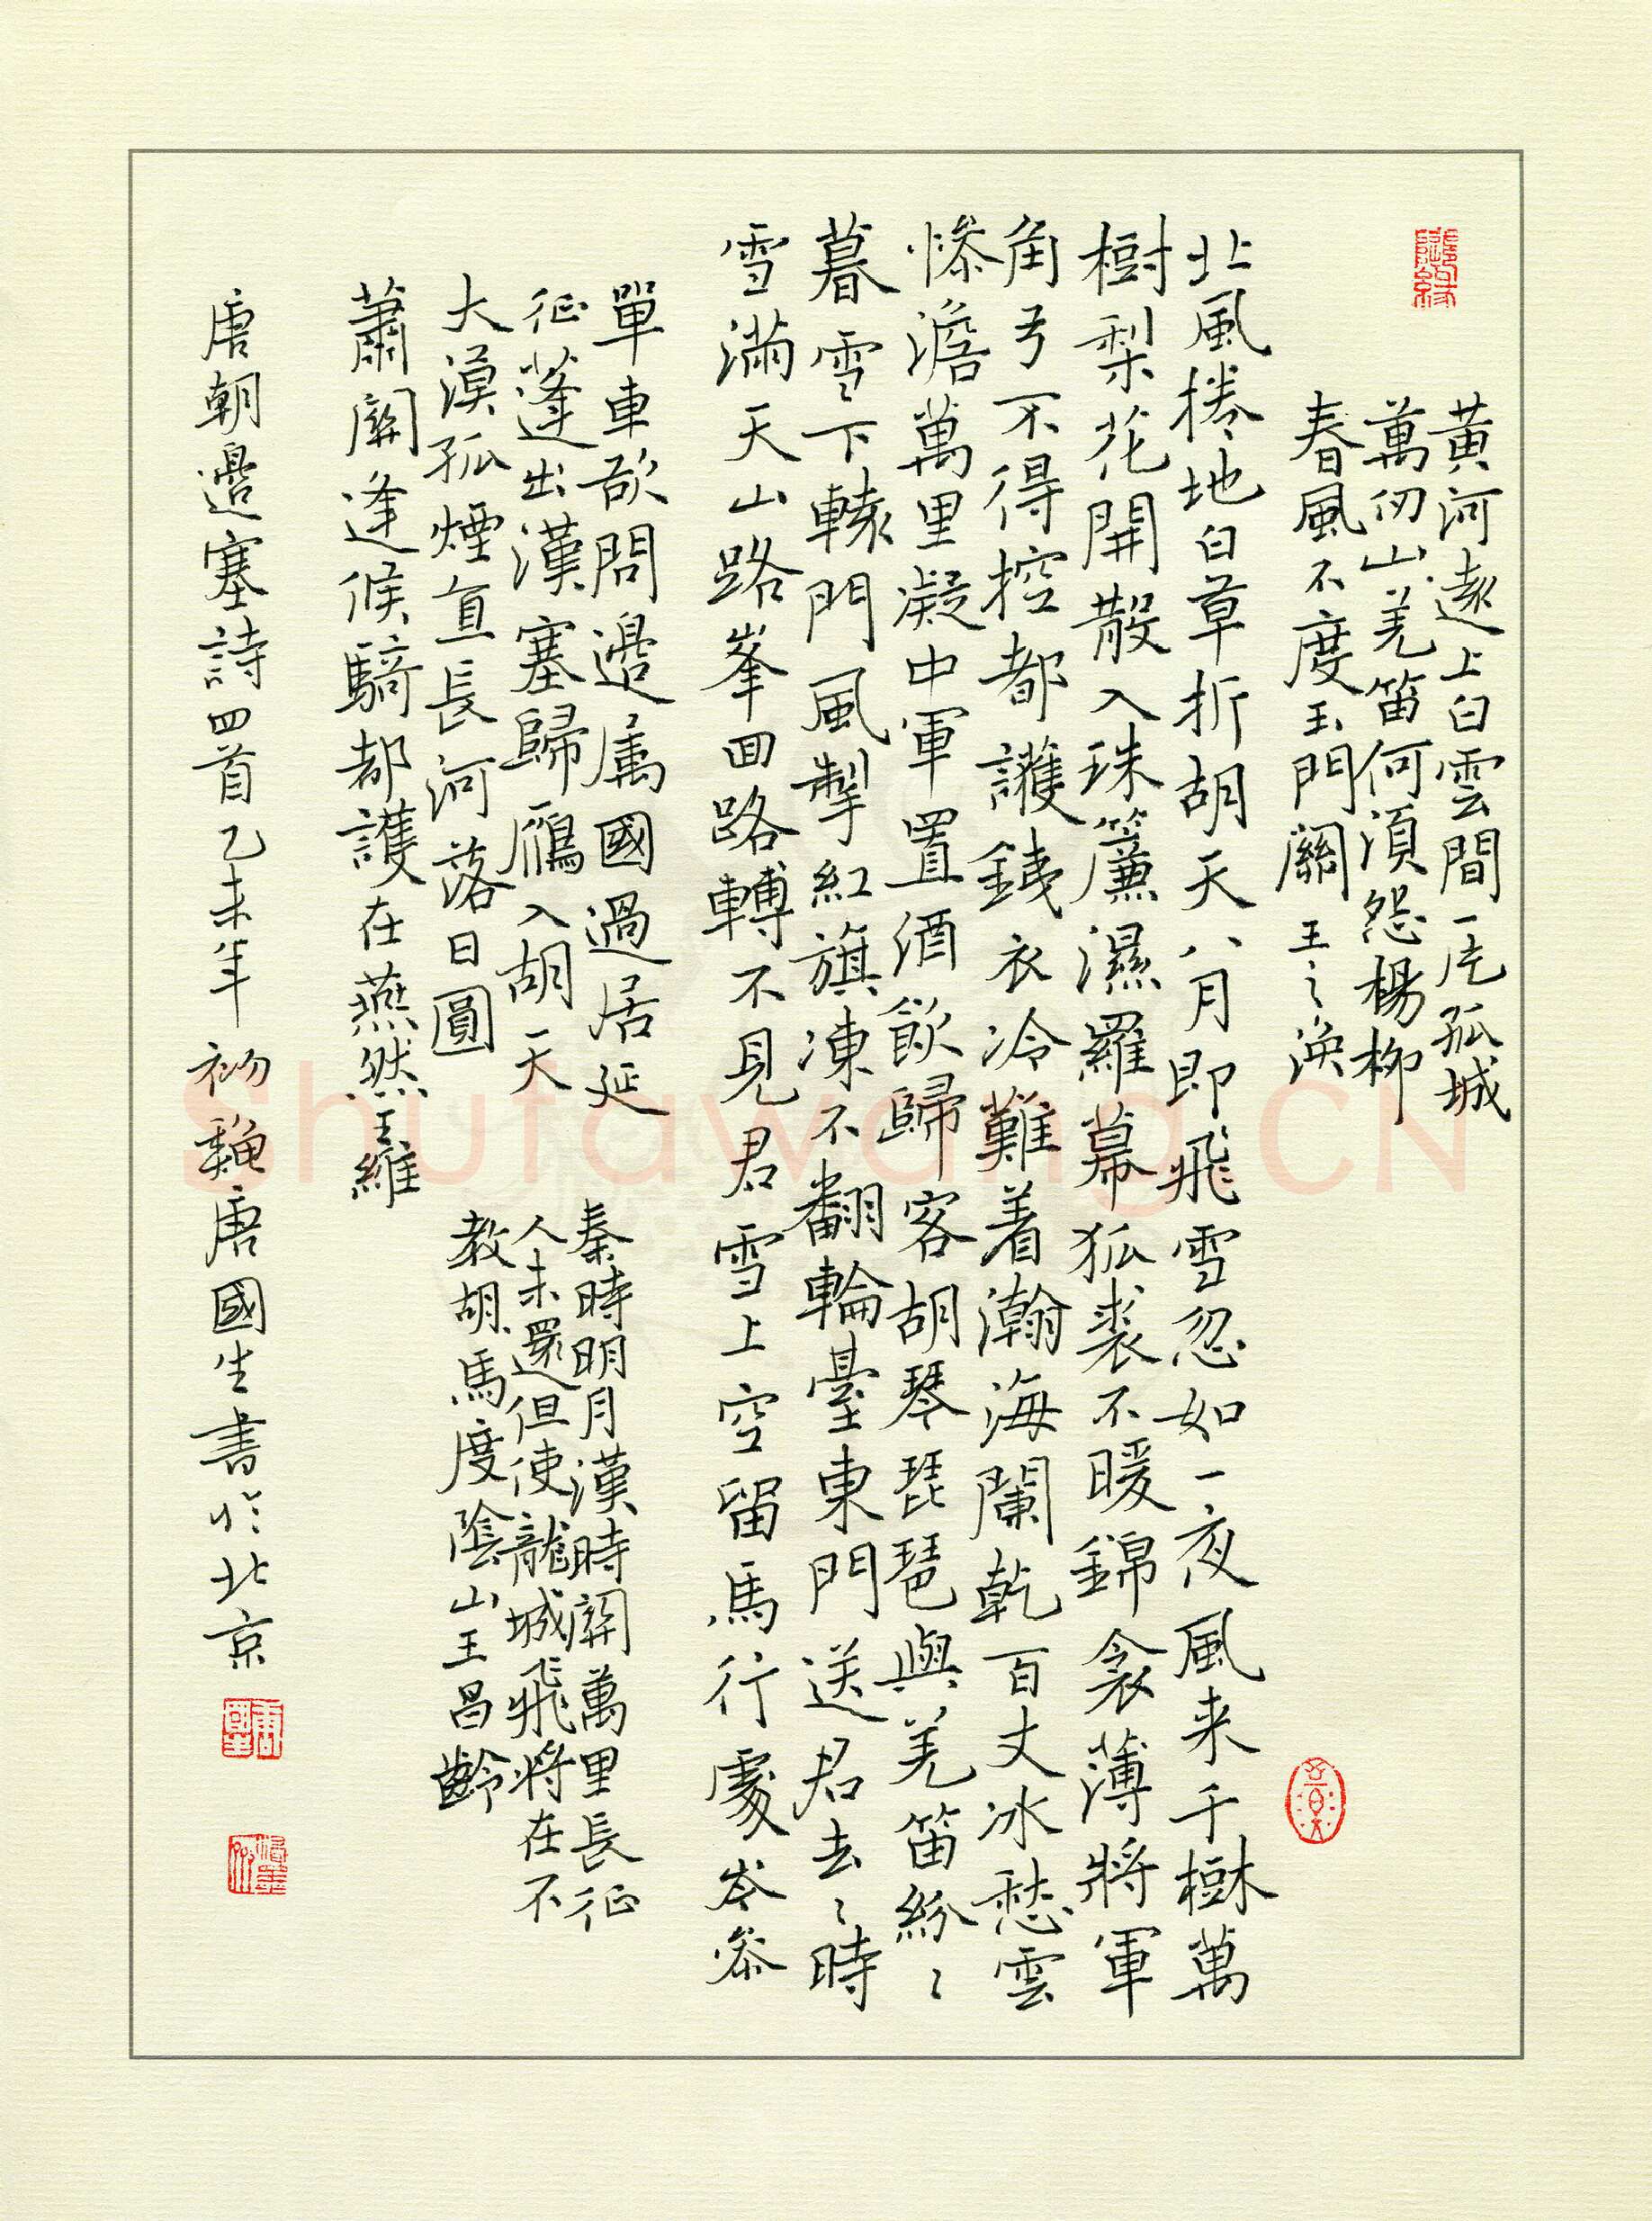 黃河遠上白雲間一片孤城
萬仞山羌笛何須怨楊柳
春風不度玉門關 王之渙
北風捲地白草折胡天八月即飛雪忽如一夜風来千樹萬
樹梨花開散入珠簾濕羅幕狐裘不暖錦衾薄將軍
角弓不得控都護鐵衣冷難着瀚海闌乾百丈冰愁雲
慘澹萬里凝中軍置酒飲歸客胡琴琵琶與羌笛紛〻
暮雪〻下轅門風掣紅旗凍不翻輪臺東門送君去〻時
雪滿天山路峯回路轉不見君雪上空留馬行處岑參
單車欲問邊属國過居延
征蓬出漢塞歸鴈入胡天
大漠孤煙直長河落日圓
蕭關逢候騎都護在燕然王維
秦時明月漢時關萬里長征
人未還但使龍城飛將在不
教胡馬度陰山王昌齡
唐朝邊塞詩四首乙未年初秋唐國生書於北京
Shufawang.CN